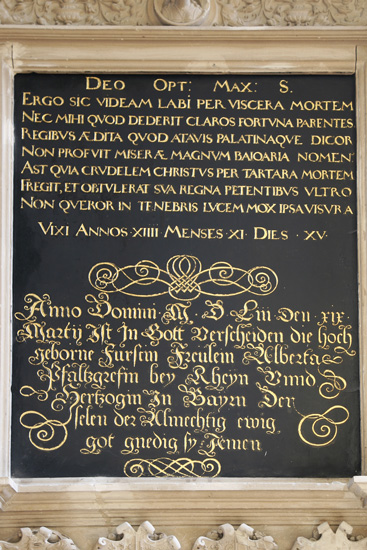 DEO OPT: MAX: S.
ERGO SIC VIDEAM LABI PER VISCERA MORTEM
NEC MIHI QVOD DEDERIT CLAROS FORTVNA PARENTES
REGIBVS ÆDITA QVOD ATAVIS PALATINAQVE DICOR
NON PROFVIT MISERÆ MAGNVM BAIOARIA NOMEN:
AST QVIA CRVDELEM CHRISTVS PER TARTARA MORTEM
FREGIT, ET OBTVLERAT SVA REGNA PETENTIBVS VLTRO
NON QVEROR IN TENEBRIS LVCEM MOX IPSA VISVRA
VIXI ANNOS·XIIII·MENSES·XI·DIES·XV·
Anno Domini M. D Liii Den xix
Martij Ist Jn Gott Verscheiden die hoch
geborne Furstin Freulein Alberta
Pfaltzgrefin bey Rheyn Vnnd
Hertzogin Jn Bayrn Der
selen der Almechtig ewig
got gnedig sy Jemen,